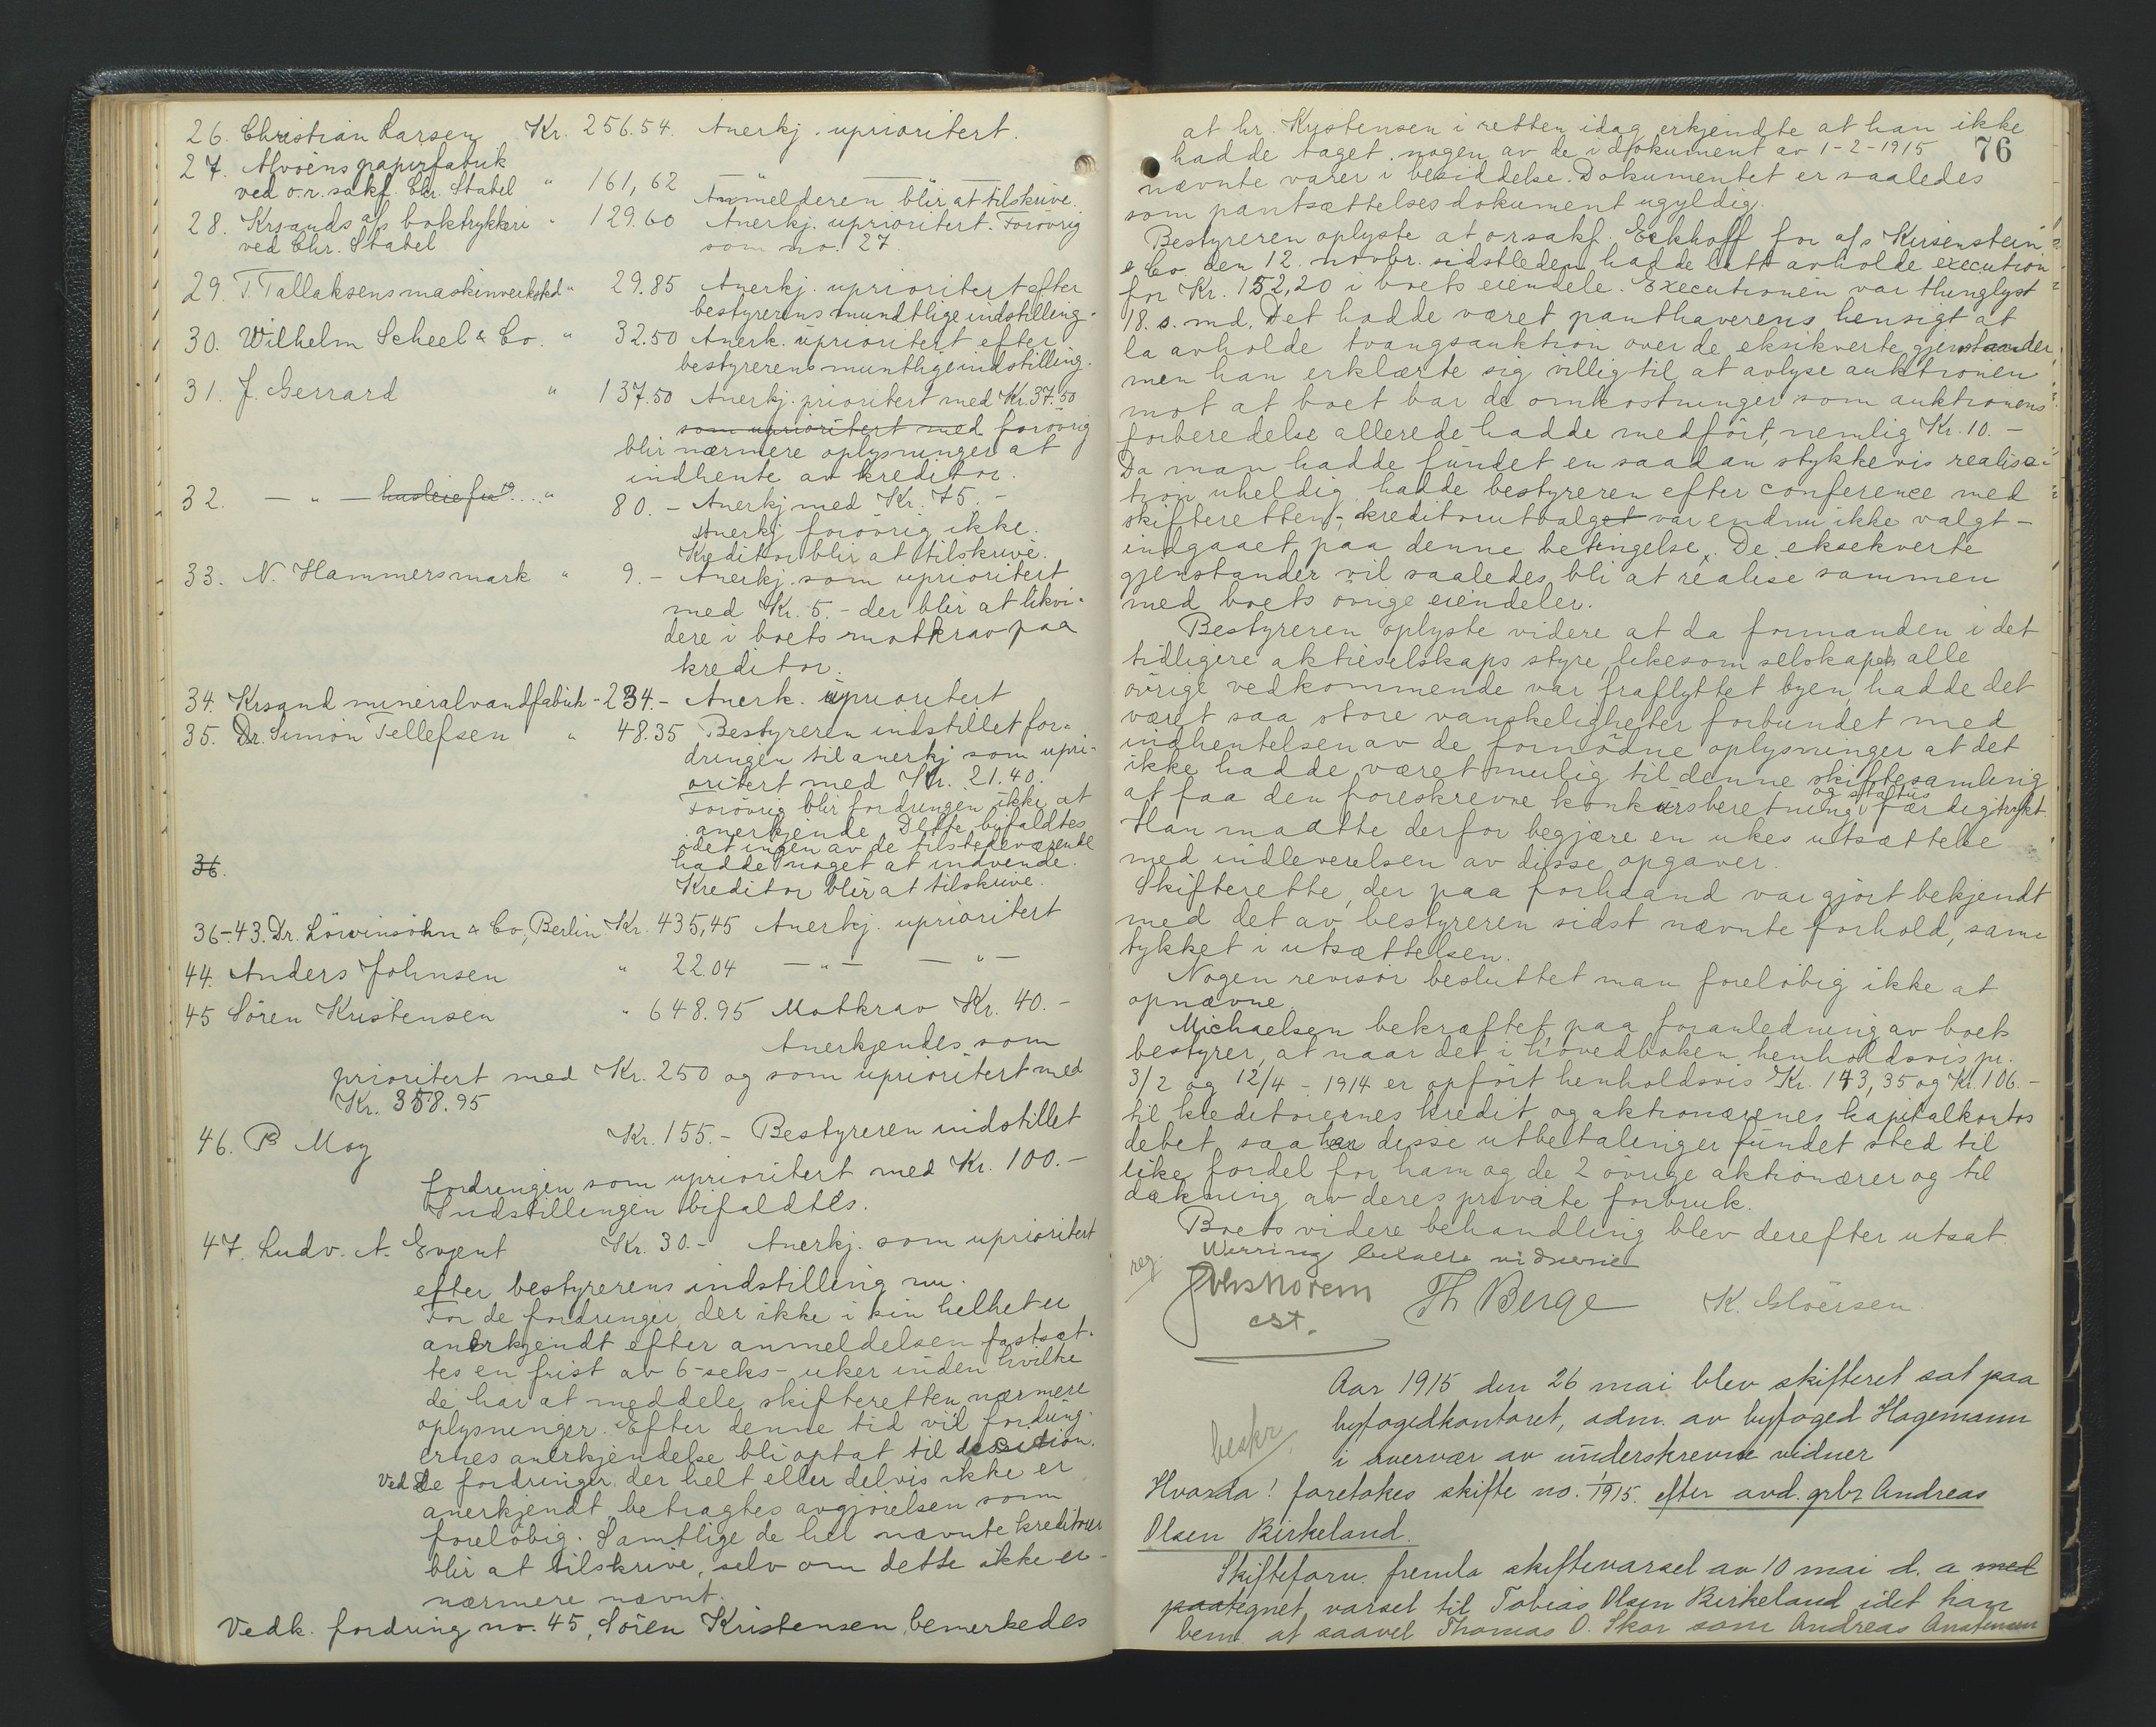 26. Christian Larsen Kr. 256.54. Anerkj. uprioritert.
27. Alvöens papirfabrik
ved o.r. sakf. Chr. Stabel " 161,62 — " —
Anmelderen blir at tilskrive.
28. Krsands a/s boktrykkeri " 129.60 Anerkj. uprioritert. Forövrig
ved Chr. Stabel som no. 27
29. T. Tallaksens maskinverksted " 29.85 Anerkj. uprioritert efter
bestyrerens mundtlige indstilling.
30. Wilhelm Scheel & Co. " 32.50 Anerk. uprioritert efter
bestyrerens muntlige indstilling.
31. J. Gerrard " 137.50 Anerkj. prioritert med Kr. 37.50
som uprioritert med forövrig
blir nærmere oplysninger at
indhente av kreditor.
32. — " — husleie " 80.- Anerkj med Kr. 75.-
Anerkj forövrig ikke.
Kreditor blir at tilskrive.
33. N. Hammersmark " 9.- Anerkj. som uprioritert
med Kr. 5.- der blir at likvi-
dere i boets motkrav paa
kreditor.
34. Krsand mineralvandfabrik - 234.- Anerk. uprioritert
35. Dr. Simon Tellefsen " 48.35 Bestyreren indstillet for-
dringen til anerkj som upri-
oritert med Kr. 21.40.
Forövrig blir fordringen ikke at
anerkjende. Dette bifaldtes
idet ingen av de tilstedeværende
36. hadde noget at indvende.
Kreditor blir at tilskrive.
36-43. Dr. Löwinsohn & Co, Berlin Kr. 435,45 Anerkj. uprioritert
44. Anders Johnsen " 22.04 — " — — " —
45 Sören Kristensen " 648.95 Motkrav Kr. 40.-
Anerkjendes som
prioritert med Kr. 250 og som uprioritert med
Kr. 358.95
46. B Moy Kr. 155.- Bestyreren indstillet
fordringen som uprioritert med Kr. 100.-
Indstillingen bifaldtes.
47. Ludv. A. Evjent Kr. 30.- Anerkj. som uprioritert
efter bestyrerens indstilling nu.
For de fordringer, der ikke i sin helhet er
anerkjendt efter anmeldelsen fastsat-
tes en frist av 6-seks- uker inden hvilke
de har at meddele skifteretten nærmere
oplysninger. Efter denne tid vil fordring-
ernes anerkjendelse bli optat til decision.
Ved de fordringer der helt eller delvis ikke er
anerkjendt betragtes avgjörelsen som
forelöbig. Samtlige de her nævnte kreditorer
blir at tilskrive, selv om dette ikke er
nærmere nævnt.
Vedk. fordring no. 45, Sören Kristensen, bemerkedes
76
at hr. Kristensen i retten idag erkjendte at han ikke
hadde taget nogen av de i dokument av 1-2-1915
nævnte varer i besiddelse. Dokumentet er saaledes
som pantsættelsesdokument ugyldig.
Bestyreren oplyste at orsakf. Eckhoff for a/s Kirsenstein
& Co. den 12. novbr. sidstleden hadde latt avholde execution
for Kr. 152,20 i boets eiendele. Executionen var thinglyst
18. s. md. Det hadde været panthaverens hensigt at
la avholde tvangsauktion over de eksikverte gjenstander,
men han erklærte sig villig til at avlyse auktionen
mot at boet bar de omkostninger som auktionens
forberedelse allerede hadde medfört, nemlig Kr. 10.-
Da man hadde fundet en saadan stykkevis realisa-
tion uheldig hadde bestyreren efter conference med
skifteretten,- kreditorutvalget var endnu ikke valgt -
indgaaet paa denne betingelse. De eksekverte
gjenstander vil saaledes bli at realise sammen
med boets övrige eiendeler.
Bestyreren oplyste videre at da formanden i det
tidligere aktieselskaps styre, likesom selskapets alle
övrige vedkommende var fraflyttet byen, hadde det
været saa store vanskeligheter forbundet med
indhentelsen av de fornödne oplysninger at det
ikke hadde været mulig til denne skiftesamling
og status
at faa den foreskrevne konkursberetning færdigtrykt.
Han maatte derfor begjære en ukes utsættelse
med indleverelsen av disse opgaver.
Skifterette, der paa forhaand var gjort bekjendt
med det av bestyreren sidst nævnte forhold, sam-
tykket i utsættelsen.
Nogen revisor besluttet man forelöbig ikke at
opnævne.
Michaelsen bekræftet paa foranledning av boets
bestyrer, at naar det i hovedboken henholdsvis pr.
3/2 og 12/4 - 1914 er opfört henholdsvis Kr. 143,35 og Kr. 106.-
til kreditorernes kredit og aktionærenes kapitalkontos
debet, saa har disse utbetalinger fundet sted til
like fordel for ham og de 2 övrige aktionærer og til
dækning av deres private forbruk.
Boets videre behandling blev derefter utsat.
reg. Werring
Th Berge K. Glöersen.
cst.
Aar 1915 den 26 mai blev skifteret sat paa
byfogedkontoret, adm. av byfoged Hagemann
beskr. i overvær av underskrevne vidner
Hvorda! foretokes skifte no. 1/1915. efter avd. grbr Andreas
Olsen Birkeland.
Skifteforv. fremla skiftevarsel av 10 mai d. a med
paategnet varsel til Tobias Olsen Birkeland idet han
bem. at saavel Thomas O. Skar som Andreas